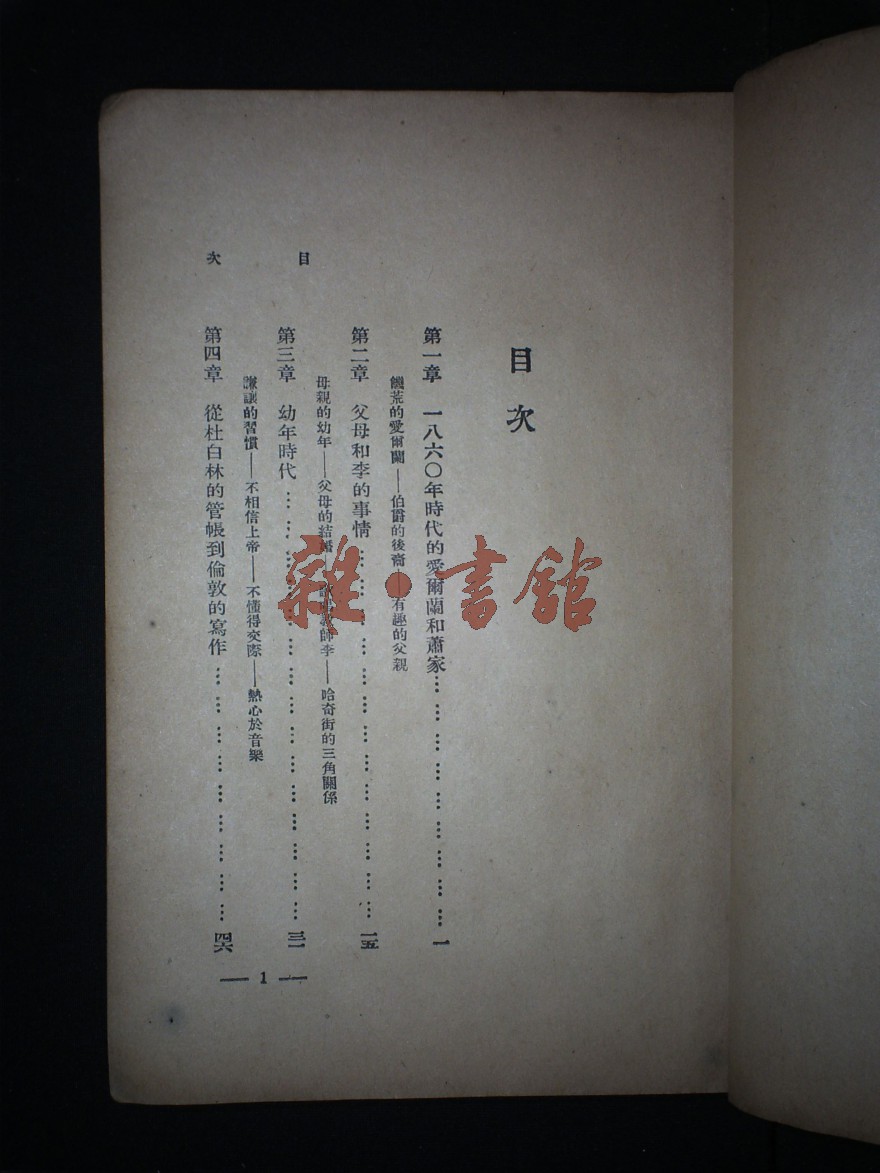 目次
第一章 一八六〇年時代的愛爾蘭和蕭家………………………………一
饑荒的愛爾蘭——伯爵的後裔——有趣的父親
第二章 父母和李的事情………………………………一五
母親的幼年——父母的結婚——師李——哈奇街的三角關係
第三章 幼年時代………………………………三一
謙讓的習慣——不相信上帝——不懂得交際——熱心於音樂
第四章 從杜白林的管帳到倫敦的寫作………………………………四六
目次
— 1 —
雜•書館